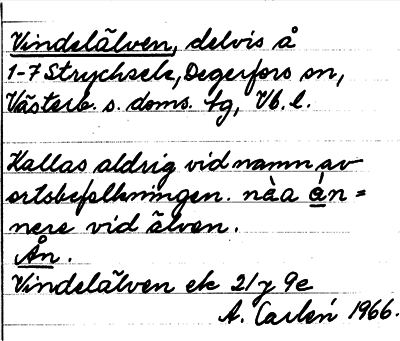 Vindelälven, delvis å
1-7 Strycksele, Degerfors sn,
Västerb. s. doms. tg, Vb. l.
Kallas aldrig vid namn av
ortsbefolkningen. nàa án =
nere vid älven.
Ån.
Vindelälven ek 21 y 9e
A. Carlén 1966.